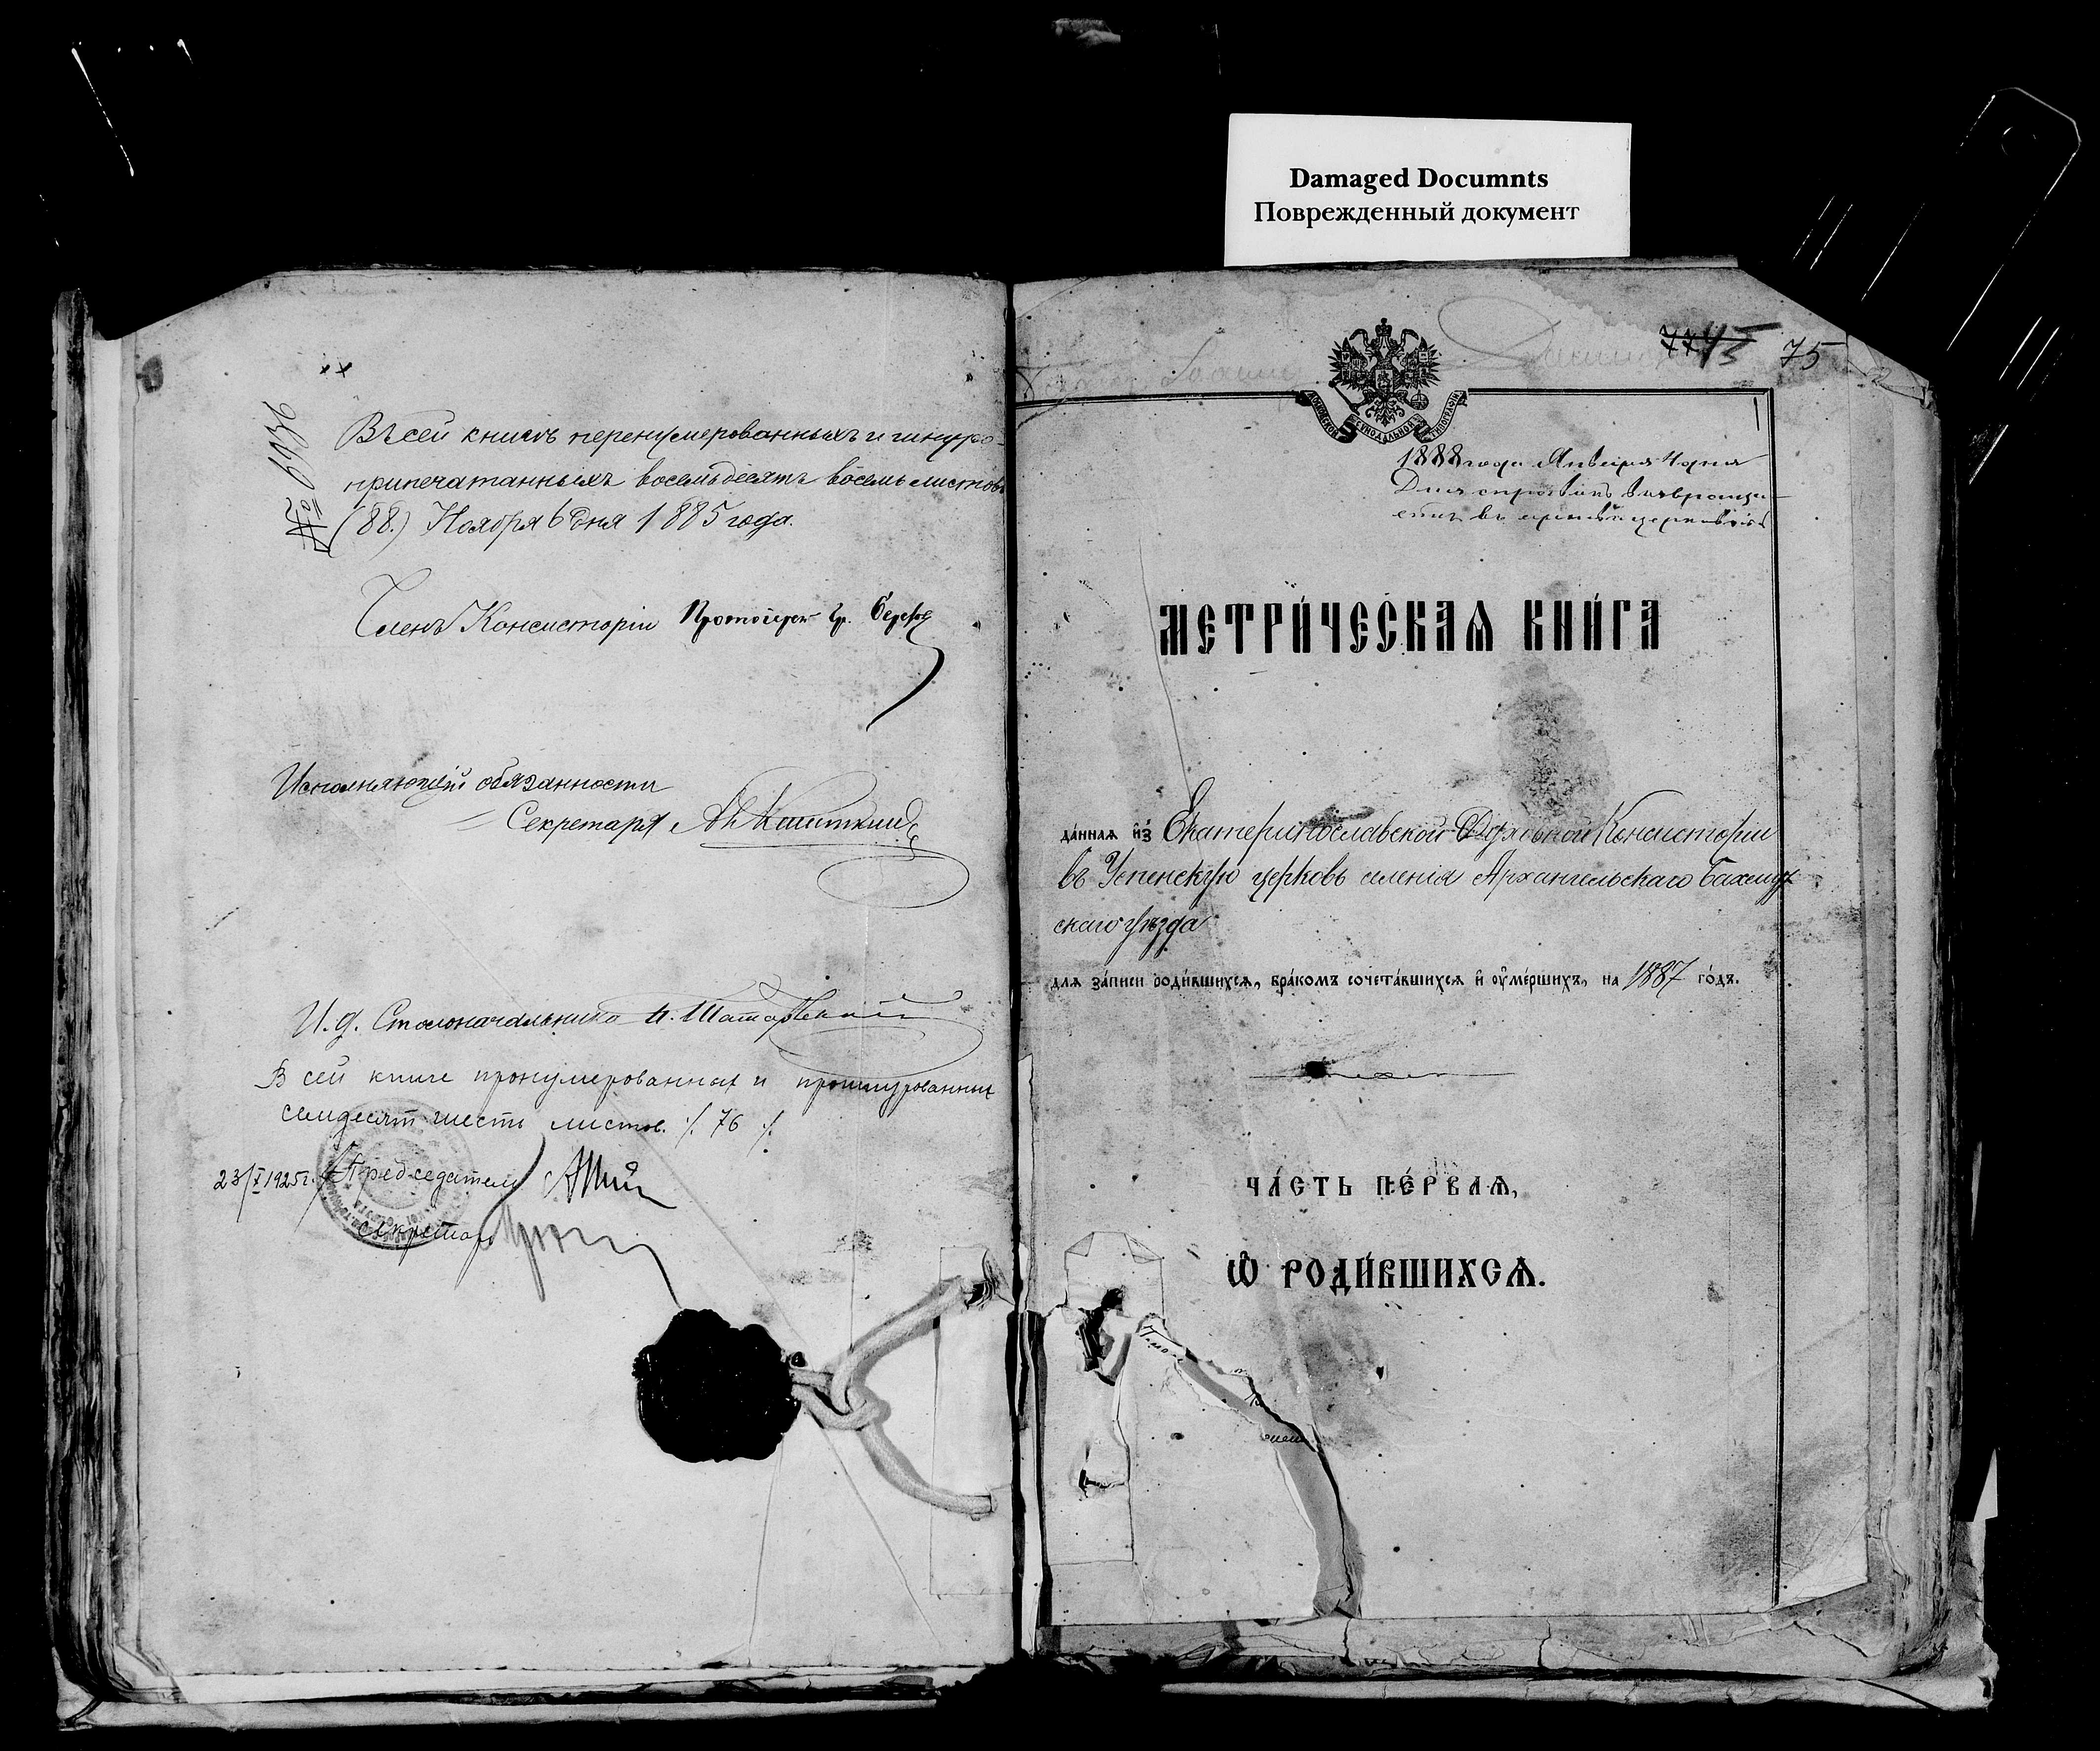 Damaged Documnts
Поврежденный документ
№ 6936
Въ сей книгѣ перенумерованныхъ и шнуро-
припечатанныхъ восемьдесятъ восемь листовъ
(88.) Ноября 6 дня 1885 года.
Членъ Консисторіи Протоіерей Гр.
Исполняющій обязанности
Секретаря
И. д. Столоначальника
В сей книге пронумерованных и прошнурованных
семдесят шесть листов. /. 76 /.
23/X 1925 г. Председатель
Секретарь
75
1
МОСКОВСКОЙ СѴНОДАЛЬНОЙ ТИПОГРАФІИ
1888 года Января 4 дня
въ церковь
МЕТРИ́ЧЕСКАѦ КНИ́ГА
да́нная и҆з̾ Екатеринославской Духовной Консисторіи
въ Успенскую церковь селенія Архангельскаго Бахмут
скаго уѣзда
для за́писи роди́вшихсѧ, бра́комъ сочета́вшихсѧ и҆ ᲂу҆ме́ршихъ, на 1887 го́дъ.
ЧА́СТЬ ПЕ́РВАѦ,
Ѡ҆ РОДИ́ВШИХСѦ.